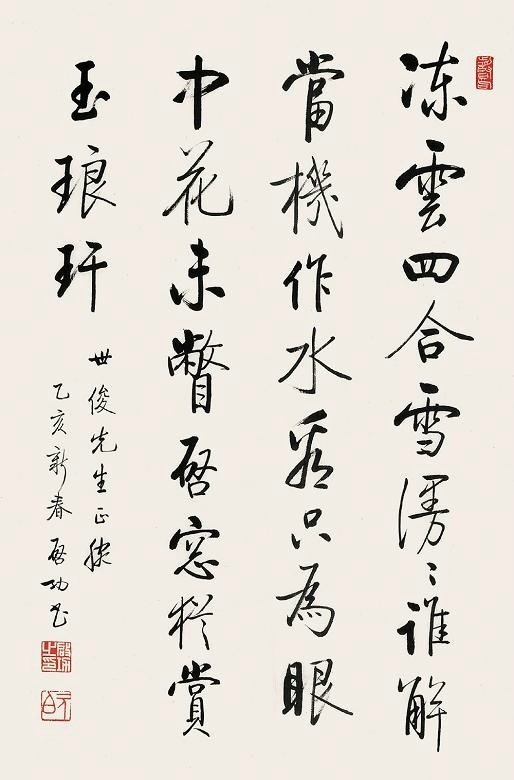 凍雲四合雪漫〻誰解
當機作水看只為眼
中花未瞥啓窓猶賞
玉琅玕
世俊先生正腕
乙亥新春啓功書
啓功之印
元白